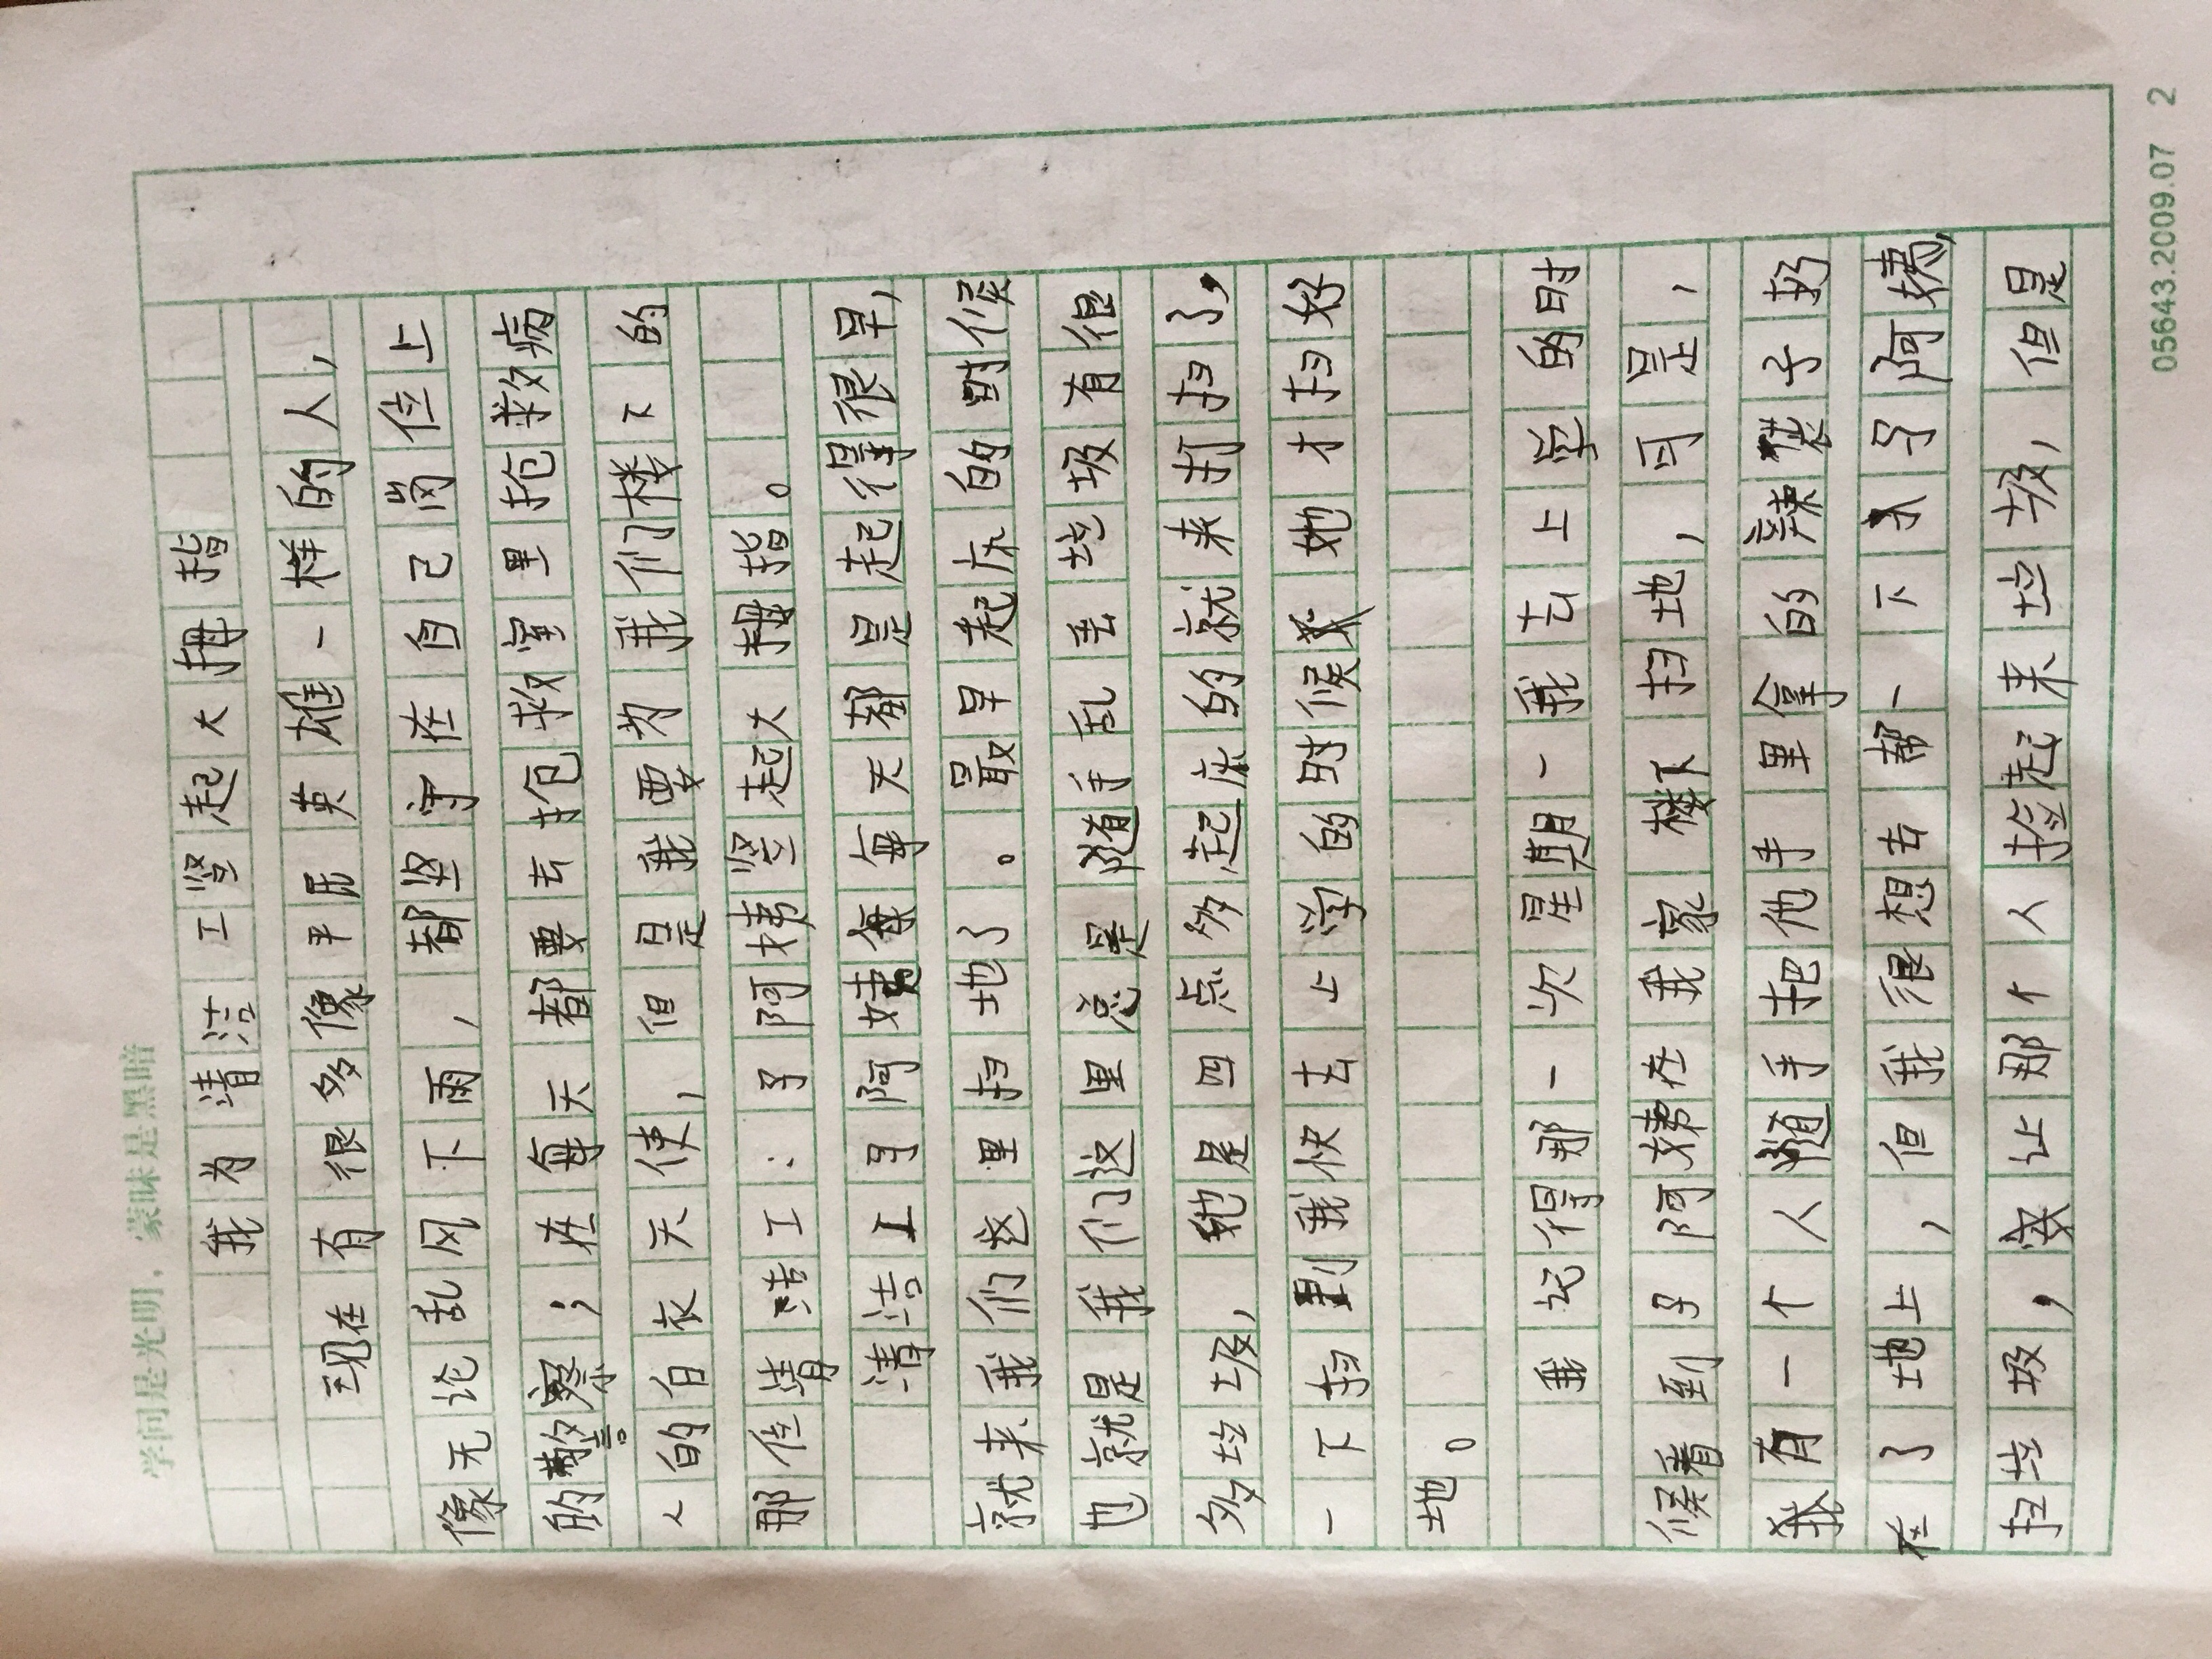 学问是光明，蒙昧是黑暗
我为清洁工竖起大拇指
现在有很多像平凡英雄一样的人，
像无论乱风下雨，都坚守在自己岗位上
的警察；在每天都要去抢救室里抢救病
人的白衣天使，但是我要为我们楼下的
那位清洁工：子阿姨竖起大拇指。
清洁工子阿姨每天都是起得很早，
就来我们这里扫地了。最早起床的时候
也就是我们这里总是随手乱丢垃圾有很
多垃圾，她是四点多起床的就来打扫了，
一下扫到我快去上学的时候她才扫好
地。
我记得那一次星期一我去上学的时
候看到子阿姨在我家楼下扫地，可是，
我有一个人随手把他手里拿的辣条子扔
在了地上，但我很想去帮一下子阿姨，
扫垃圾，没让那个人捡起来垃圾，但是
05643.2009.07 2